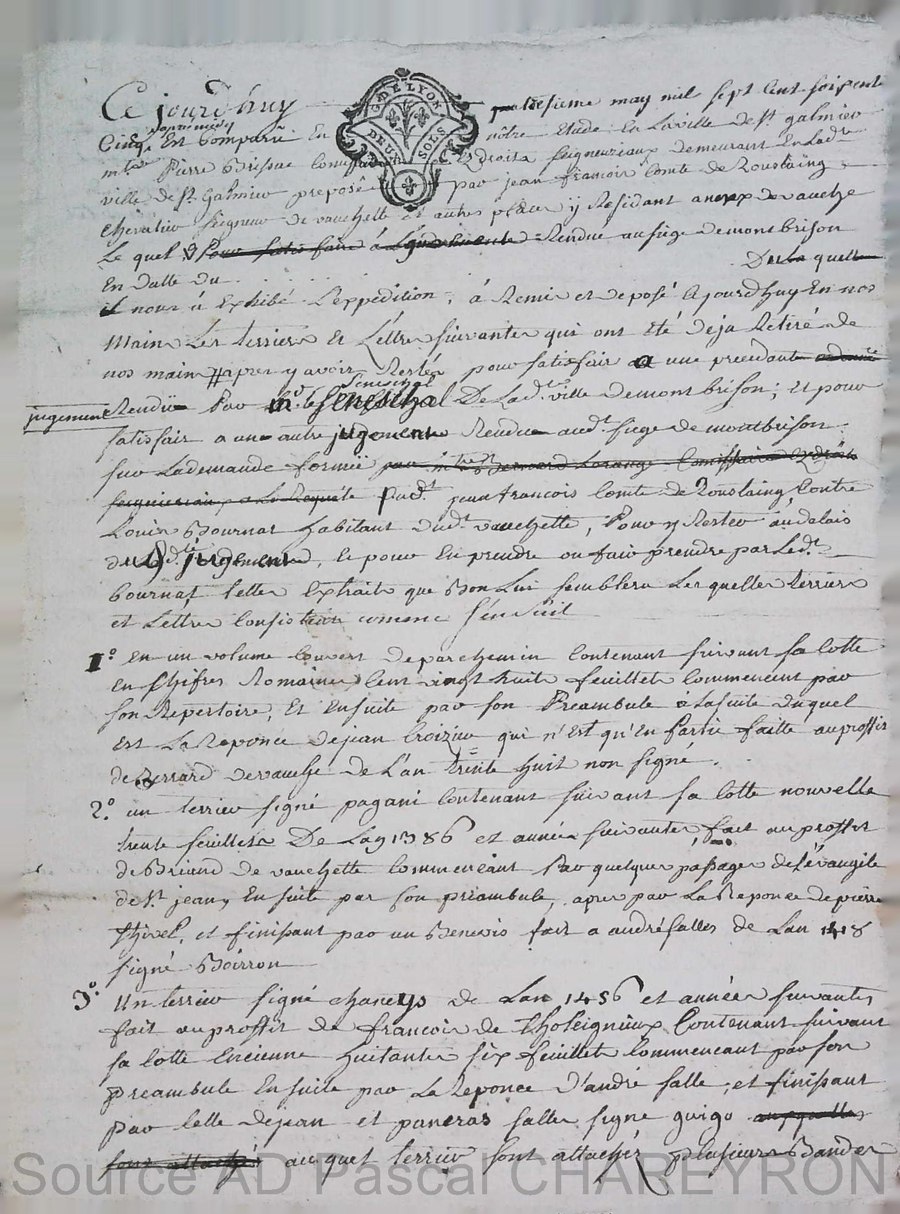 Ce jourd'huy
G. DE LYON
DEUX SOLS
may mil sept Cent soixente
Cinq Est Comparû En nôtre Etude En La ville de St galmier
mtre Pierre Brissac Comiss Et droits seigneuriaux demeurant En Ladte
ville de St Galmier preposé par jean francois Comte de Roustaing
Chevalier seigneur de vauchette Et autres places y Residant de vauche
Le quel Pour satisfaire à Rendue au siége de montbrison
En datte du De La quelle
il nous à Exhibé L'expedition, à Remis et deposé Ajourdhuy En nos
main Les terriers Et Lettre suivante qui ont Eté deja Retiré de
nos main apres y avoir Resté pour satisfair a une precedant
jugement Rendüe Par mr. Le senechal De Ladt. ville demontbrison; Et pour
senechal
satisfair a une autre jugement Rendue audt siege de montbrison
sur La demande formée
a La Requête Par dt jean francois Comte de Roustaing Contre
Louis Bournat habitant dudt vauchette, Pour y Rester au delais
du dt jugement, Et pour En prendre ou fair prendre par Ledt
bournat telle Extrait que Bon Lui semblera Les quelles terriers
et Lettre Consistent comme s'en suit
1o. En un volume Couvert de parchemin Contenant suivant sa Cotte
En Chifres Romaine Cent vingt huit feuillet Commencent par
son Repertoire, Et Ensuite par son Préambule à La suite du quel
Est La Reponce de jean Croizier qui n'Est qu'En Partie faitte au proffit
de Berrard de vauche de L'an trente huit non signé.
2o. un terrier signé pagani Contenant suivant sa Cotte nouvelle
trente feuillets De L'an 1386 et année suivantes, fait au proffit
de Briand de vauchette Commencant Par quelque passage de L'évangile
de St jean, Ensuite par son préambule, apres par La Reponce de pierre
thivel, et finissant par un Benevis fait a andré falles de Lan 1418
signé Boirron
3o. Un terrier signé chaneys de Lan 1456 et année suivantes
fait au proffit de francois de Choleignieux Contenant suivant
sa Cotte Encienne huitante six feuillet Commencant par son
preambule Ensuite par La Reponce d'andré falle, et finissant
par Celle de jean et pancras falles signé guigo auxquelles
sont attaché au quel terrier sont attaché plusieurs Bandes
Source AD Pascal CHAREYRON